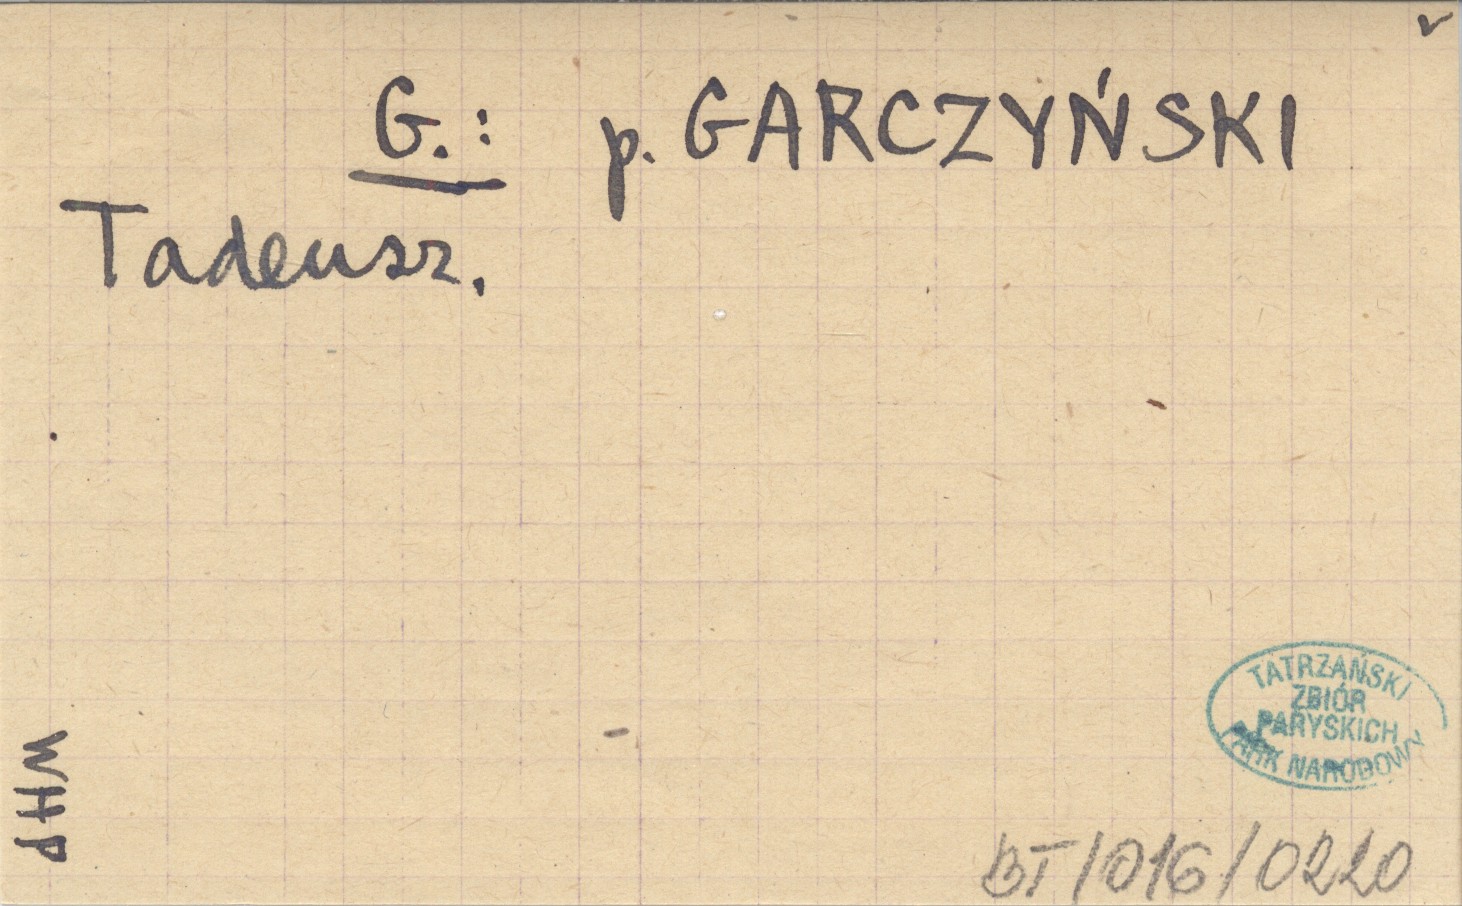 G.: p. GARCZYŃSKI
Tadeusz.
WHP
TATRZAŃSKI
ZBIÓR
PARYSKICH
PARK NARODOWY
BT/016/0220